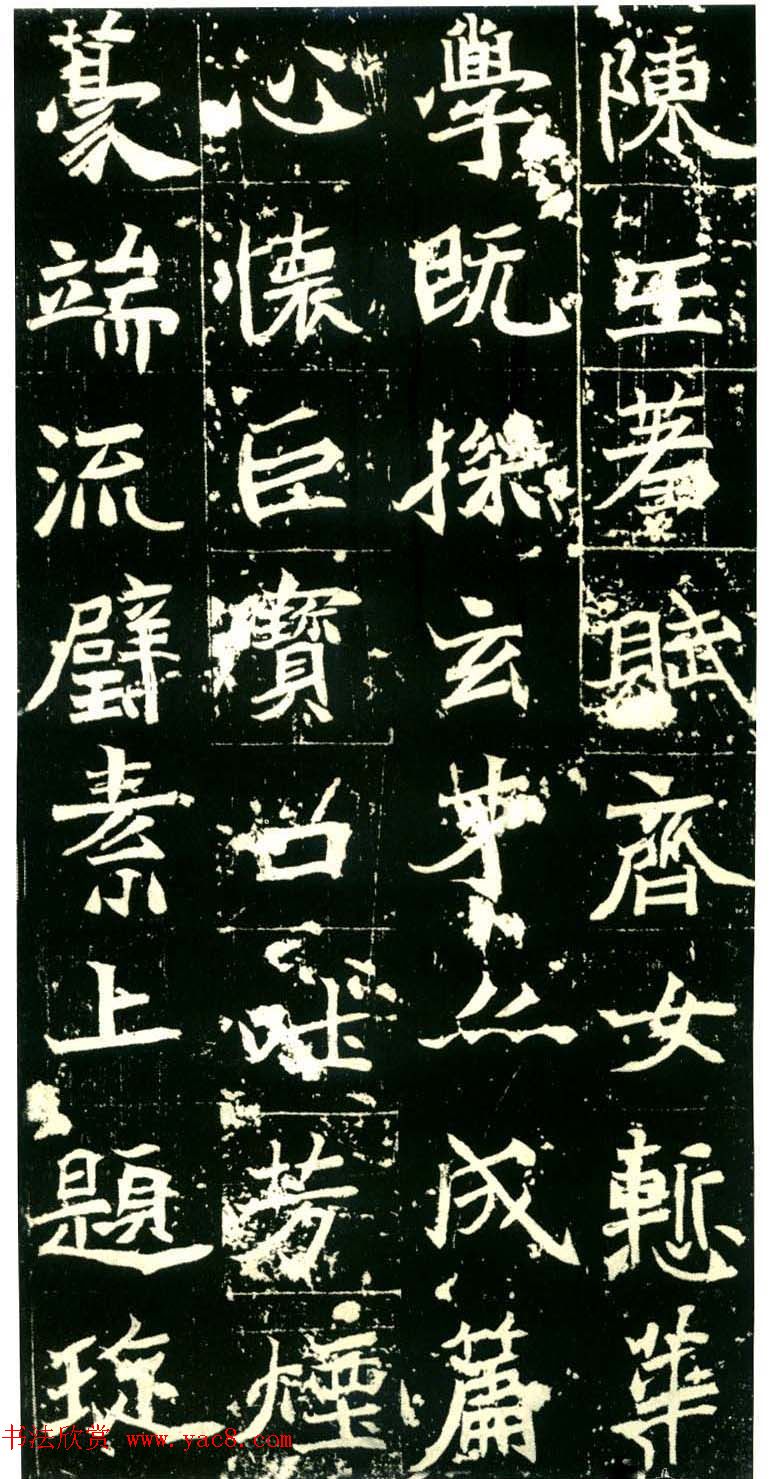 陳王著賦齊女慙華
學既探玄才成篇
心懷巨寶口吐芳煙
豪端流璧素上題琁
书法欣赏 www.yac8.com